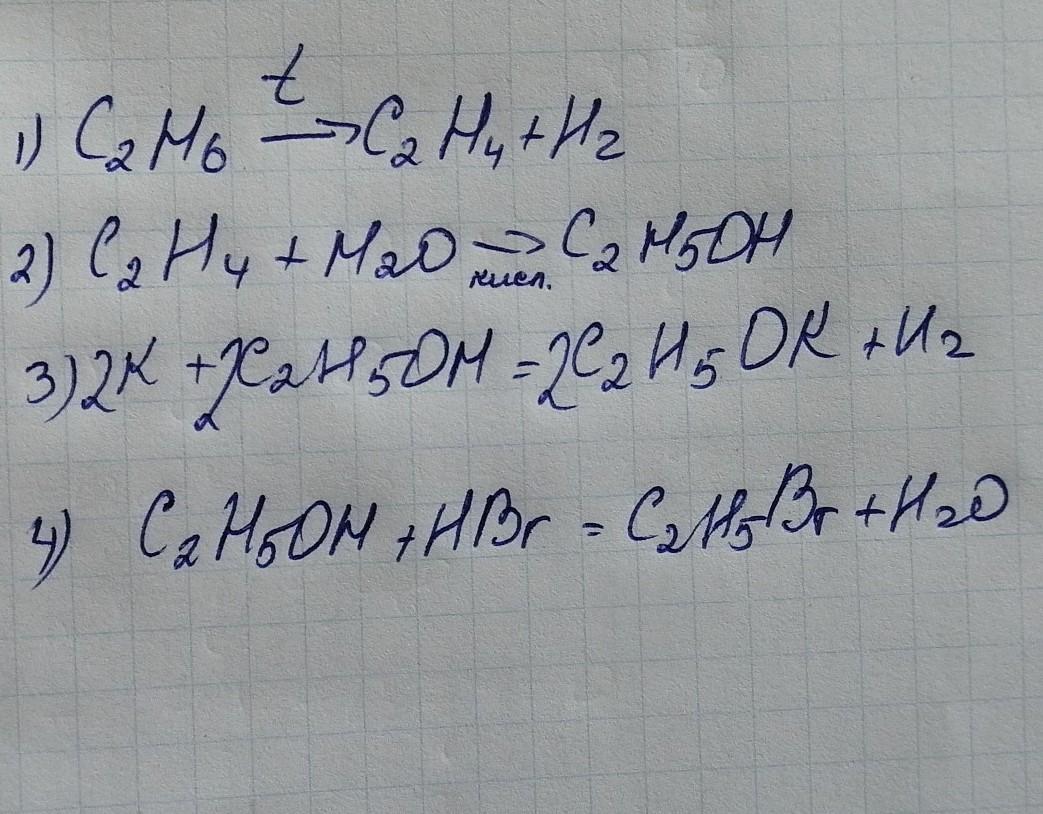 1) C₂H₆ t→ C₂H₄ + H₂
2) C₂H₄ + H₂O → кисл. C₂H₅OH
3) 2K + 2C₂H₅OH = 2C₂H₅OK + H₂
4) C₂H₅OH + HBr = C₂H₅Br + H₂O